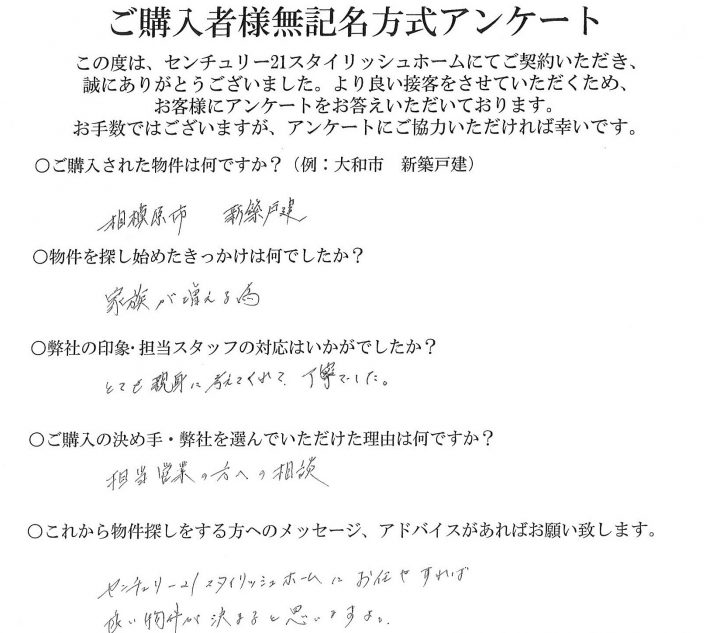 ご購入者様無記名方式アンケート
この度は、センチュリー21スタイリッシュホームにてご契約いただき、
誠にありがとうございました。より良い接客をさせていただくため、
お客様にアンケートをお答えいただいております。
お手数ではございますが、アンケートにご協力いただければ幸いです。
○ご購入された物件は何ですか？（例：大和市　新築戸建）
相模原市　新築戸建
○物件を探し始めたきっかけは何でしたか？
家族が増える為
○弊社の印象・担当スタッフの対応はいかがでしたか？
とても親身に考えてくれて、丁寧でした。
○ご購入の決め手・弊社を選んでいただけた理由は何ですか？
担当営業の方への相談
○これから物件探しをする方へのメッセージ、アドバイスがあればお願い致します。
センチュリー21スタイリッシュホームにお任せすれば
良い物件が決まると思いますよ。